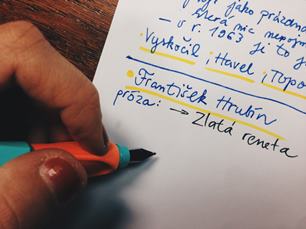 jako prázdno
která nic nepom
– v r. 1963 je to j
Vyskočil i Havel i Topo
• František Hrubín
próza: → Zlatá reneta